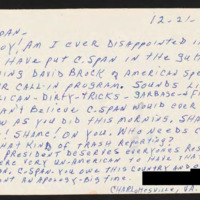 12-21-
SPAN-
BOY! AM I EVER DISAPPOINTED I
HAVE PUT C-SPAN IN THE GUT
ING DAVID BROCK OF AMERICAN SPE
ER CALL-IN PROGRAM. SOUNDS LI
ICAN-DIRTY-TRICKS-GARBAGE-
AN'T BELIEVE C-SPAN WOULD EVER
AS YOU DID THIS MORNING. SHA
! SHAME! ON YOU. WHO NEEDS C
THAT KIND OF TRASH REPORTING?
PRESIDENT DESERVES EVERYONES RES
RE VERY UN-AMERICAN TO HAVE THA
AN. C-SPAN. YOU OWE THIS COUNTRY AND
ENT AN APOLOGY-BIG TIME.
CHARLOTTSVILLE, VA.